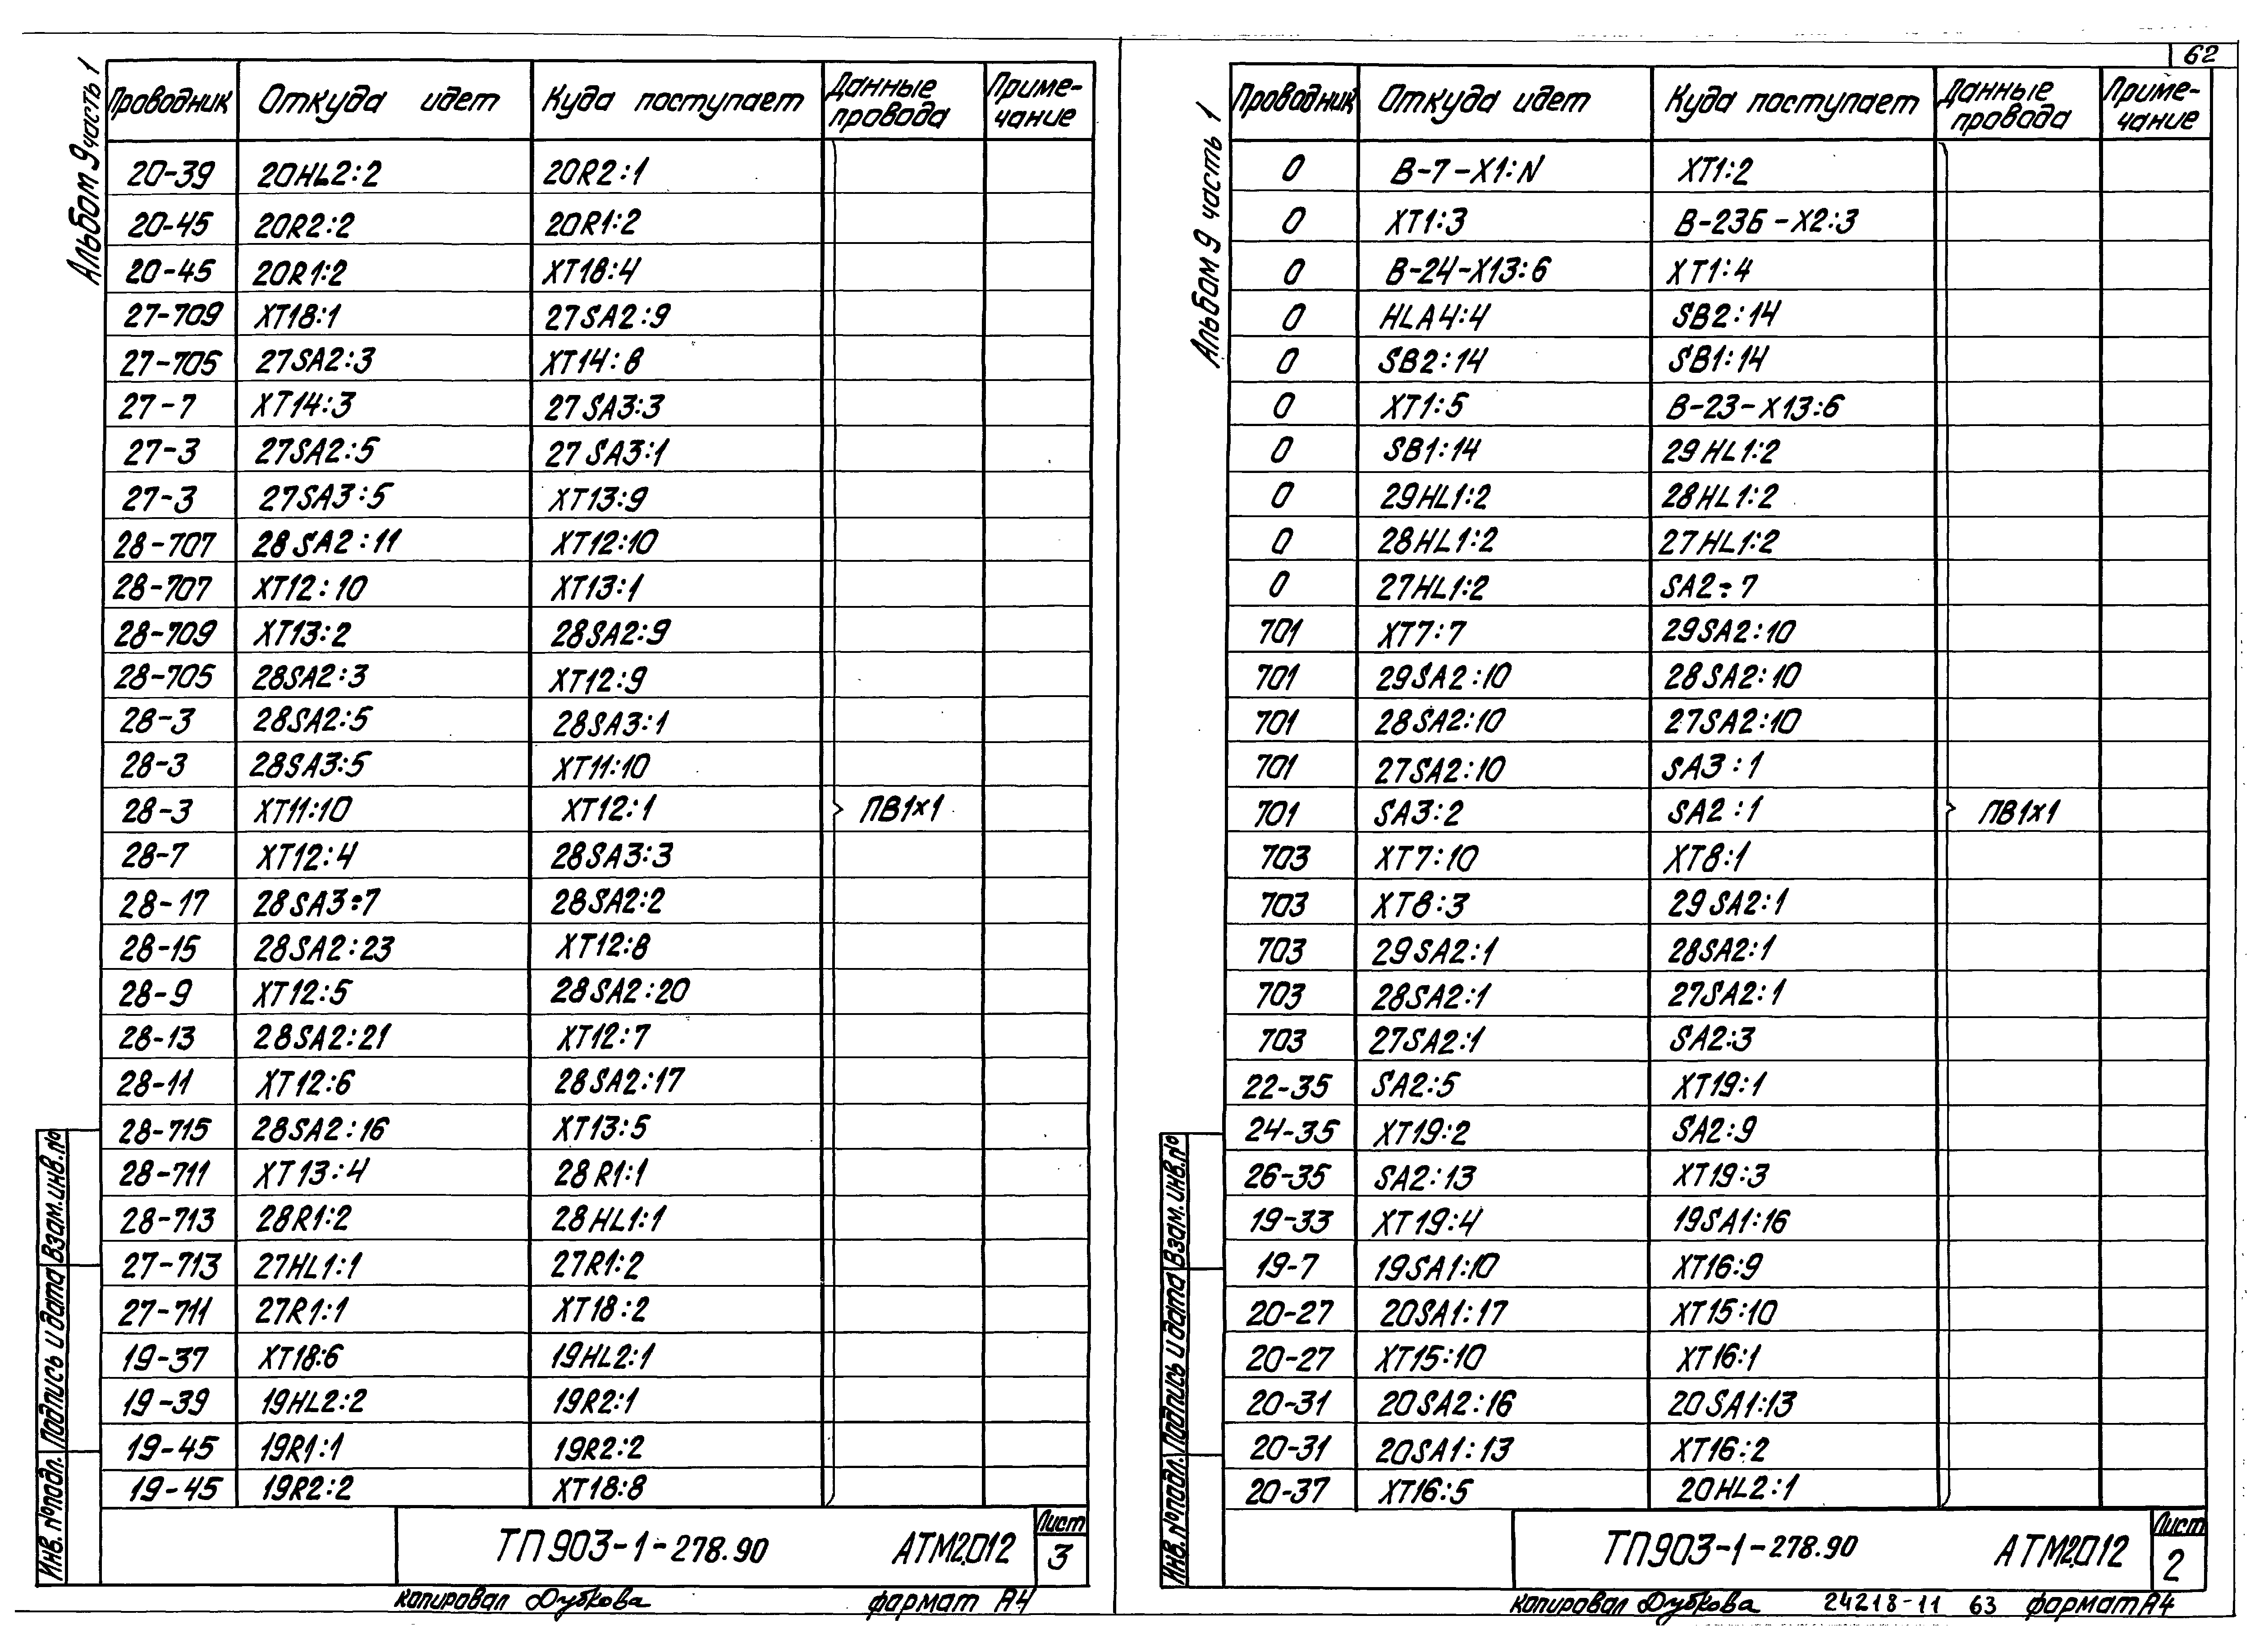 Альбом 9 часть 1
Проводник Откуда идет Куда поступает Данные провода Приме-чание
20-39 20HL2:2 20R2:1
20-45 20R2:2 20R1:2
20-45 20R1:2 XT18:4
27-709 XT18:1 27SA2:9
27-705 27SA2:3 XT14:8
27-7 XT14:3 27SA3:3
27-3 27SA2:5 27SA3:1
27-3 27SA3:5 XT13:9
28-707 28SA2:11 XT12:10
28-707 XT12:10 XT13:1
28-709 XT13:2 28SA2:9
28-705 28SA2:3 XT12:9
28-3 28SA2:5 28SA3:1
28-3 28SA3:5 XT11:10
28-3 XT11:10 XT12:1 ПВ1х1
28-7 XT12:4 28SA3:3
28-17 28SA3:7 28SA2:2
28-15 28SA2:23 XT12:8
28-9 XT12:5 28SA2:20
28-13 28SA2:21 XT12:7
28-11 XT12:6 28SA2:17
28-715 28SA2:16 XT13:5
28-711 XT13:4 28R1:1
28-713 28R1:2 28HL1:1
27-713 27HL1:1 27R1:2
27-711 27R1:1 XT18:2
19-37 XT18:6 19HL2:1
19-39 19HL2:2 19R2:1
19-45 19R1:1 19R2:2
19-45 19R2:2 XT18:8
Инв. № подл. Подпись и дата Взам. инв. №
ТП 903-1-278.90 АТМ2.012 Лист 3
копировал Дубкова формат А4
62
Альбом 9 часть 1
Проводник Откуда идет Куда поступает Данные провода Приме-чание
0 В-7-X1:N XT1:2
0 XT1:3 В-23Б-X2:3
0 В-24-X13:6 XT1:4
0 HLA4:4 SB2:14
0 SB2:14 SB1:14
0 XT1:5 В-23-X13:6
0 SB1:14 29HL1:2
0 29HL1:2 28HL1:2
0 28HL1:2 27HL1:2
0 27HL1:2 SA2:7
701 XT7:7 29SA2:10
701 29SA2:10 28SA2:10
701 28SA2:10 27SA2:10
701 27SA2:10 SA3:1
701 SA3:2 SA2:1 ПВ1х1
703 XT7:10 XT8:1
703 XT8:3 29SA2:1
703 29SA2:1 28SA2:1
703 28SA2:1 27SA2:1
703 27SA2:1 SA2:3
22-35 SA2:5 XT19:1
24-35 XT19:2 SA2:9
26-35 SA2:13 XT19:3
19-33 XT19:4 19SA1:16
19-7 19SA1:10 XT16:9
20-27 20SA1:17 XT15:10
20-27 XT15:10 XT16:1
20-31 20SA2:16 20SA1:13
20-31 20SA1:13 XT16:2
20-37 XT16:5 20HL2:1
Инв. № подл. Подпись и дата Взам. инв. №
ТП 903-1-278.90 АТМ2.012 Лист 2
копировал Дубкова 24218-11 63 формат А4